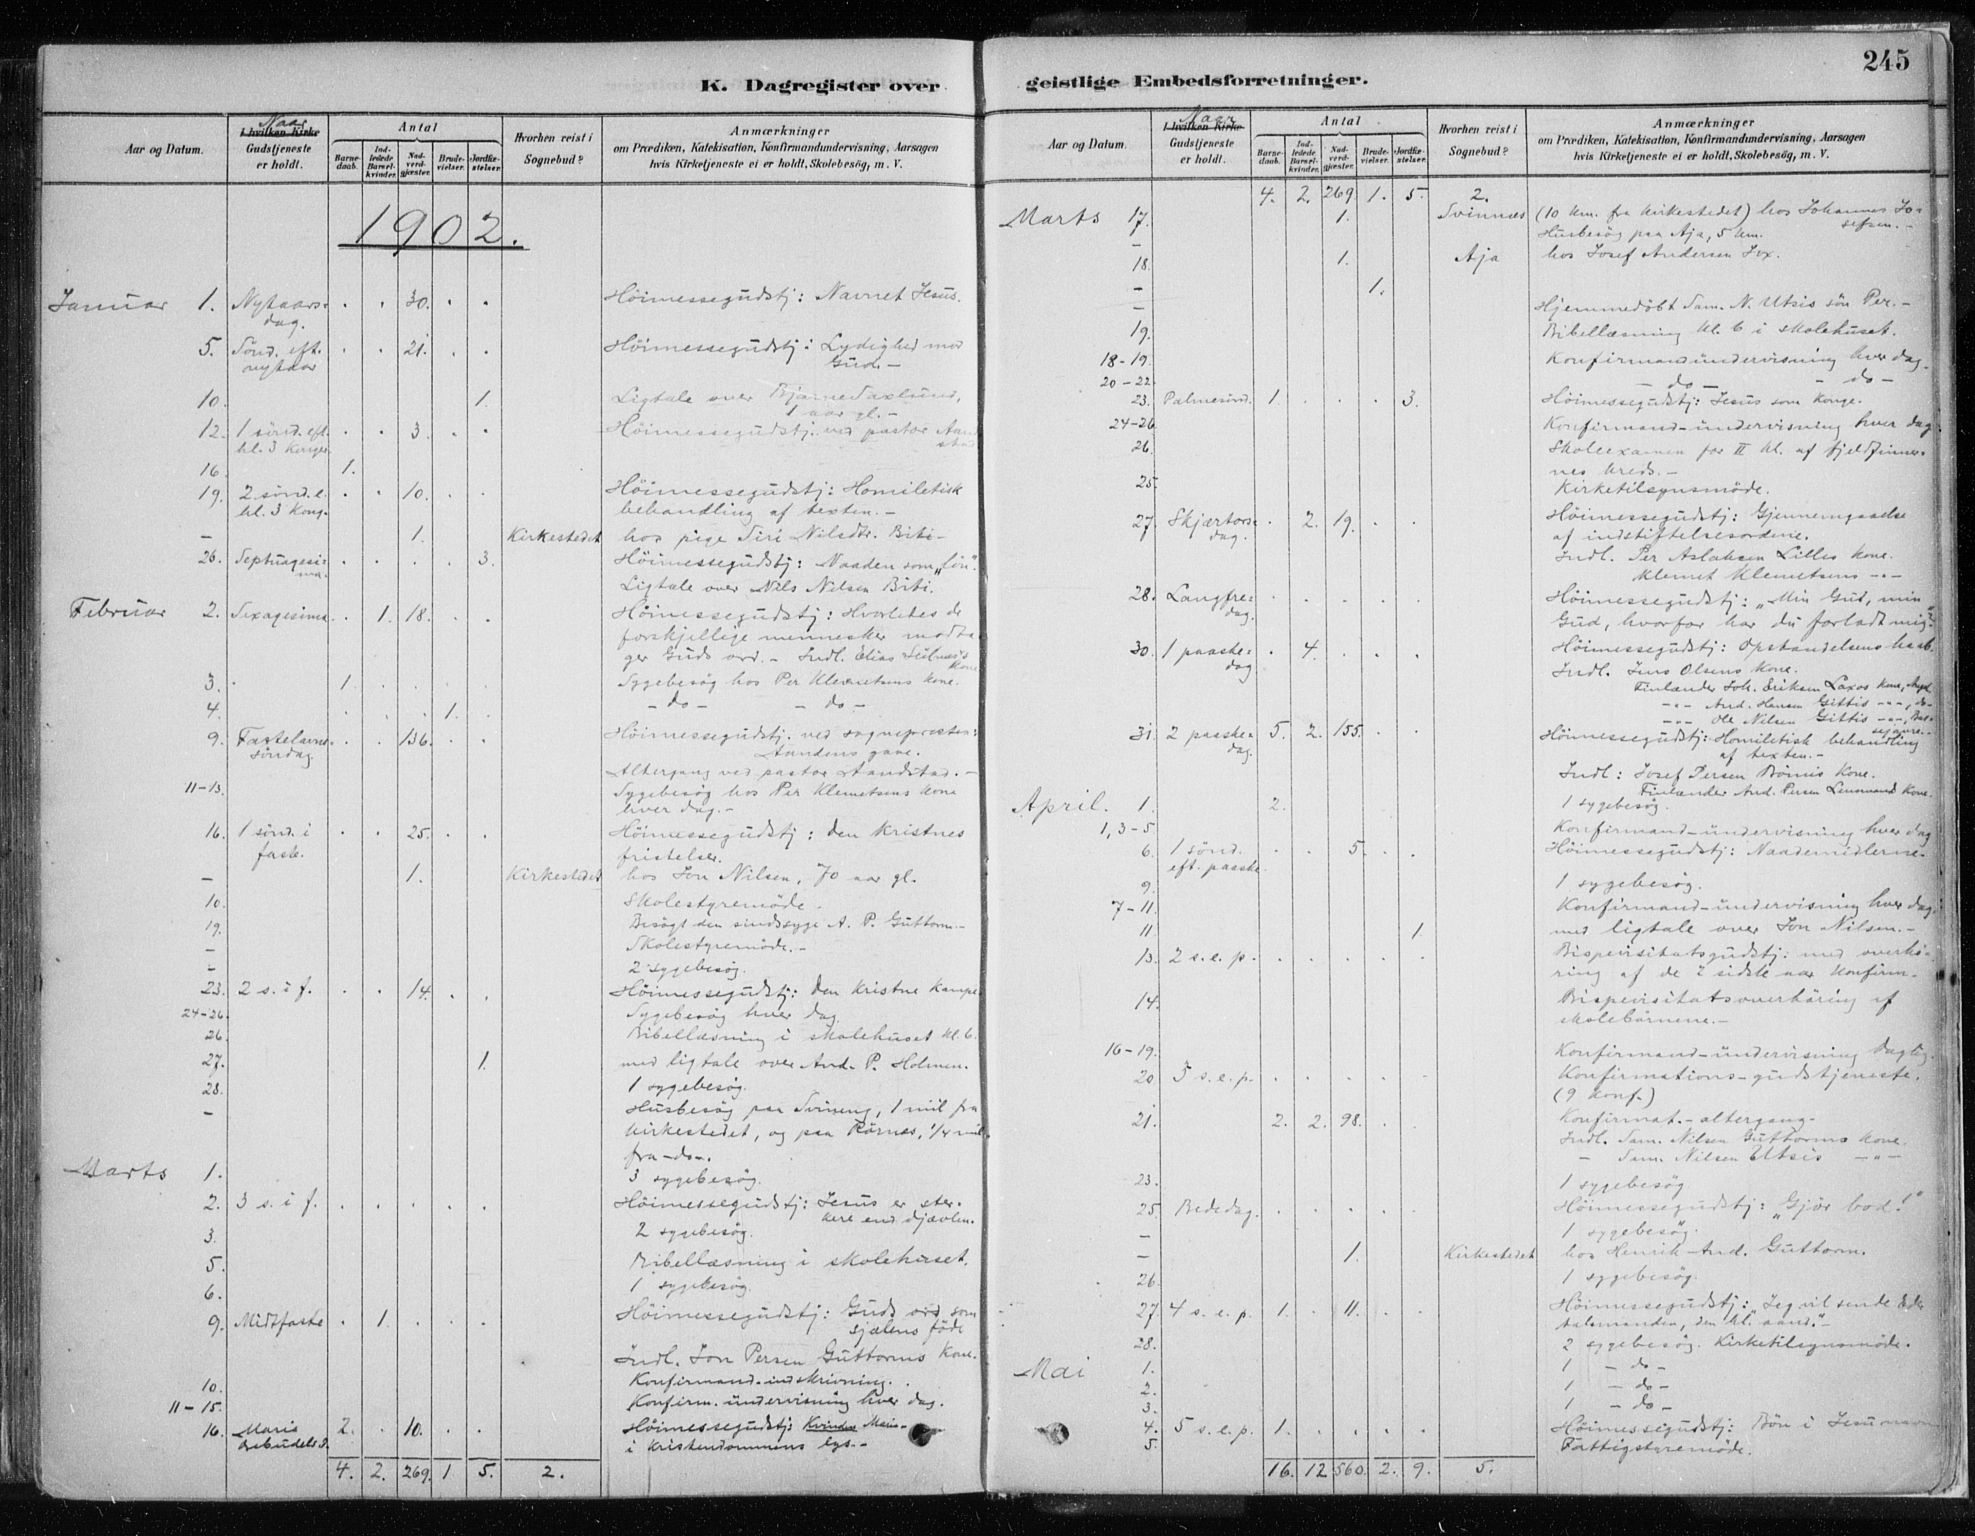 245
K. Dagregister over geistlige Embedsforretninger.
Aar og Datum.
Naar
I hvilken Kirke
Gudstjeneste
er holdt.
Antal
Barne-
daab.
Ind-
ledede
Barsel-
kvinder.
Nad-
verd-
gjæster.
Brude-
vielser.
Jordfæ-
stelser.
Hvorhen reist i
Sognebud?
Anmærkninger
om Prædiken, Katekisation, Konfirmandundervisning, Aarsagen
hvis Kirketjeneste ei er holdt, Skolebesøg, m. V.
1902.
Januar 1. Nytaars- . . 30. . . Höimessegudstj: Navnet Jesus.
dag.
5. Sönd. eft. . . 21. . . Höimessegudstj: Lydighed mod
nytaar Gud.-
10. 1. Ligtale over Bjarne Saxlund,
1 aar gl.-
12. 1 sönd. eft. . . 3. . . Höimessegudstj. ved pastor Aand-
hl. 3 Konger. stad
16. 1.
19. 2 sönd. e. . . 10. . . Höimessegudstj: Homiletisk
hl. 3 Kong. behandling af texten.-
- 1. Kirkestedet hos pige Siri Nilsdtr. Biti-
26. Septuagesi- . . . . 3. Höimessegudstj: Naaden som "lön".
ma. Ligtale over Nils Nilsen Biti.
Februar 2. Sexagesima . 1. 18. . . Höimessegudstj: Hvorledes de
forskjellige mennesker modta-
ger Guds ord.- Indl. Elias
kone
3. . 1. . . . . Sygebesög hos Per Klemetsens kone.
4. . . . 1. . -do- -do-
9. Fastelavns- . . 136. . . Höimessegudstj. ved sogneprosten:
söndag Aandens gave.
Altergang ved pastor Aandstad.-
11-13. Sygebesög hos Per Klemetsens kone
hver dag.-
16. 1 sönd. i . . 25. . . Höimessegudstj: Den kristnes
faste. fristelser.
- 1. Kirkestedet hos Jon Nilsen, 70 aar gl.
10. Skolestyremöde.
19. Besögt den sindssyge A. P. Guttorm.-
- Skolestyremöde.-
- 2 sygebesög.
23. 2 s. i f. . . 14. . . Höimessegudstj: Den kristne kampe.
24-26 Sygebesög hver dag.
26. Bibellæsning i skolehuset kl. 6.
27. 1. med ligtale over And. P. Holmen.
28. 1 sygebesög.
- Husbesög paa Svineng, 1 mil fra
kirkestedet, og paa Rörnes, 1/4 mil
fra -do-.
Marts 1. 3 sygebesög.
2. 3 s. i f. . . . . . Höimessegudstj: Jesus er ster-
kere end djævlen.
3. 2 sygebesög.
5. Bibellæsning i skolehuset.
6. 1 sygebesög.
9. Midfaste . 1. . . . Höimessegudstj: Guds ord som
sjælens föde
Indl. Jon Persen Guttorms kone.
10. Konfirmand-indskrivning.
11-15. Konfirm. undervisning hver dag.
16. Mariæ 2. . 10. . . Höimessegudstj: Kvinden Maria
bebudels. d. i kristendommens lys.-
4. 2. 269. 1 5. 2.
Aar og Datum.
Naar
I hvilken Kirke
Gudstjeneste
er holdt.
Antal
Barne-
daab.
Ind-
ledede
Barsel-
kvinder.
Nad-
verd-
gjæster.
Brude-
vielser.
Jordfæ-
stelser.
Hvorhen reist i
Sognebud?
Anmærkninger
om Prædiken, Katekisation, Konfirmandundervisning, Aarsagen
hvis Kirketjeneste ei er holdt, Skolebesøg, m. V.
4. 2. 269. 1. 5. 2.
Marts 17. 1. Svinnæs (10 km. fra kirkestedet) hos Johannes Jo-
sefsen.-
- Husbesög paa Aja, 5 km.
18. 1. Aja hos Josef Andersen Fox.
- 1.
- Hjemmedöbt Sam. N. Utsis sön Per.-
19. Bibellæsning kl. 6 i skolehuset.
18-19. Konfirmandundervisning hver dag.
20-22. -do- -do-
23. Palmesönd. 1. . . . 3. Höimessegudstj: Jesus som konge.
24-26 Konfirmand-undervisning hver dag.
26. Skoleexamen for II kl. af fjeldfinner-
nes kreds.-
25. Kirketilsynsmöde.
27. Skjærtors- . 2. 19. . . Höimessegudstj: Gjennemgaaelse
dag. af indstiftelsesordene.
Indl. Per Aslaksen Lilles kone.
Klemet Klemetsens -"-
28. Langfre- . . . . . Höimessegudstj: "Min Gud, min
dag. Gud, hvorfor har du forladt mig?"
30. 1 paaske- . 4. . . . Höimessegudstj: Opstandelsens haab.
dag Indl. Jens Olsens kone.
Finlænder Joh. Eriksen Laxos kone,
-"- And. Hansen Gittis -"-, -do-
-"- Ole Nilsen Gittis -"-,
31. 2 paaske- 5. 2. 155. . . Höimessegudstj: Homiletisk behandling
dag. af texten.-
Indl: Josef Persen kone.
Finlænder And. Persen kone.
April. 1. 2. 1 sygebesög.
1, 3-5 Konfirmand-undervisning hver dag
6. 1 sönd. . . 5. . . Höimessegudstj: Naademidlerne-
eft. paaske
9. 1 sygebesög.
7-11. Konfirmand-undervisning hver dag.
11 1. med ligtale over Jon Nilsen.-
13. 2 s. e. p. . . . . . Bispevisitatsgudstj: med overhö-
ring af de 2 sidste aar konfirm.
14. Bispevisitatsoverhöring af
skolebörnene.-
16-19. Konfirmand-undervisning daglig.
20 3 s. e. p. . . . . . Konfirmations-gudstjeneste.
(9 konf.)
21. 2. 2. 98. . . Konfirmat.-altergang-
Indl. Sam. Nilsen Guttorms kone.
- Sam. Nilsen Utsis -"-
23. 1 sygebesög.
25. Bededag. . . . . . Höimessegudstj: "Gjör bod!"
- 1 sygebesög.
- 1. Kirkestedet hos Henrik And. Guttorm.
26. 1 sygebesög.
27 4 s. e. p. 1. . 11. . . Höimessegudstj: "Jeg vil sende Eder
talsmanden, den hl. aand."-
28. 2 sygebesög. Kirketilsynsmöde.
Mai 1. 1 -do-
2. 1 -do-
3. 1 -do-
4. 5 s. e. p. 1. . . . . Höimessegudstj: Bön i Jesu navn
5. Fattigstyremöde.
16. 12 560. 2. 9. 5.